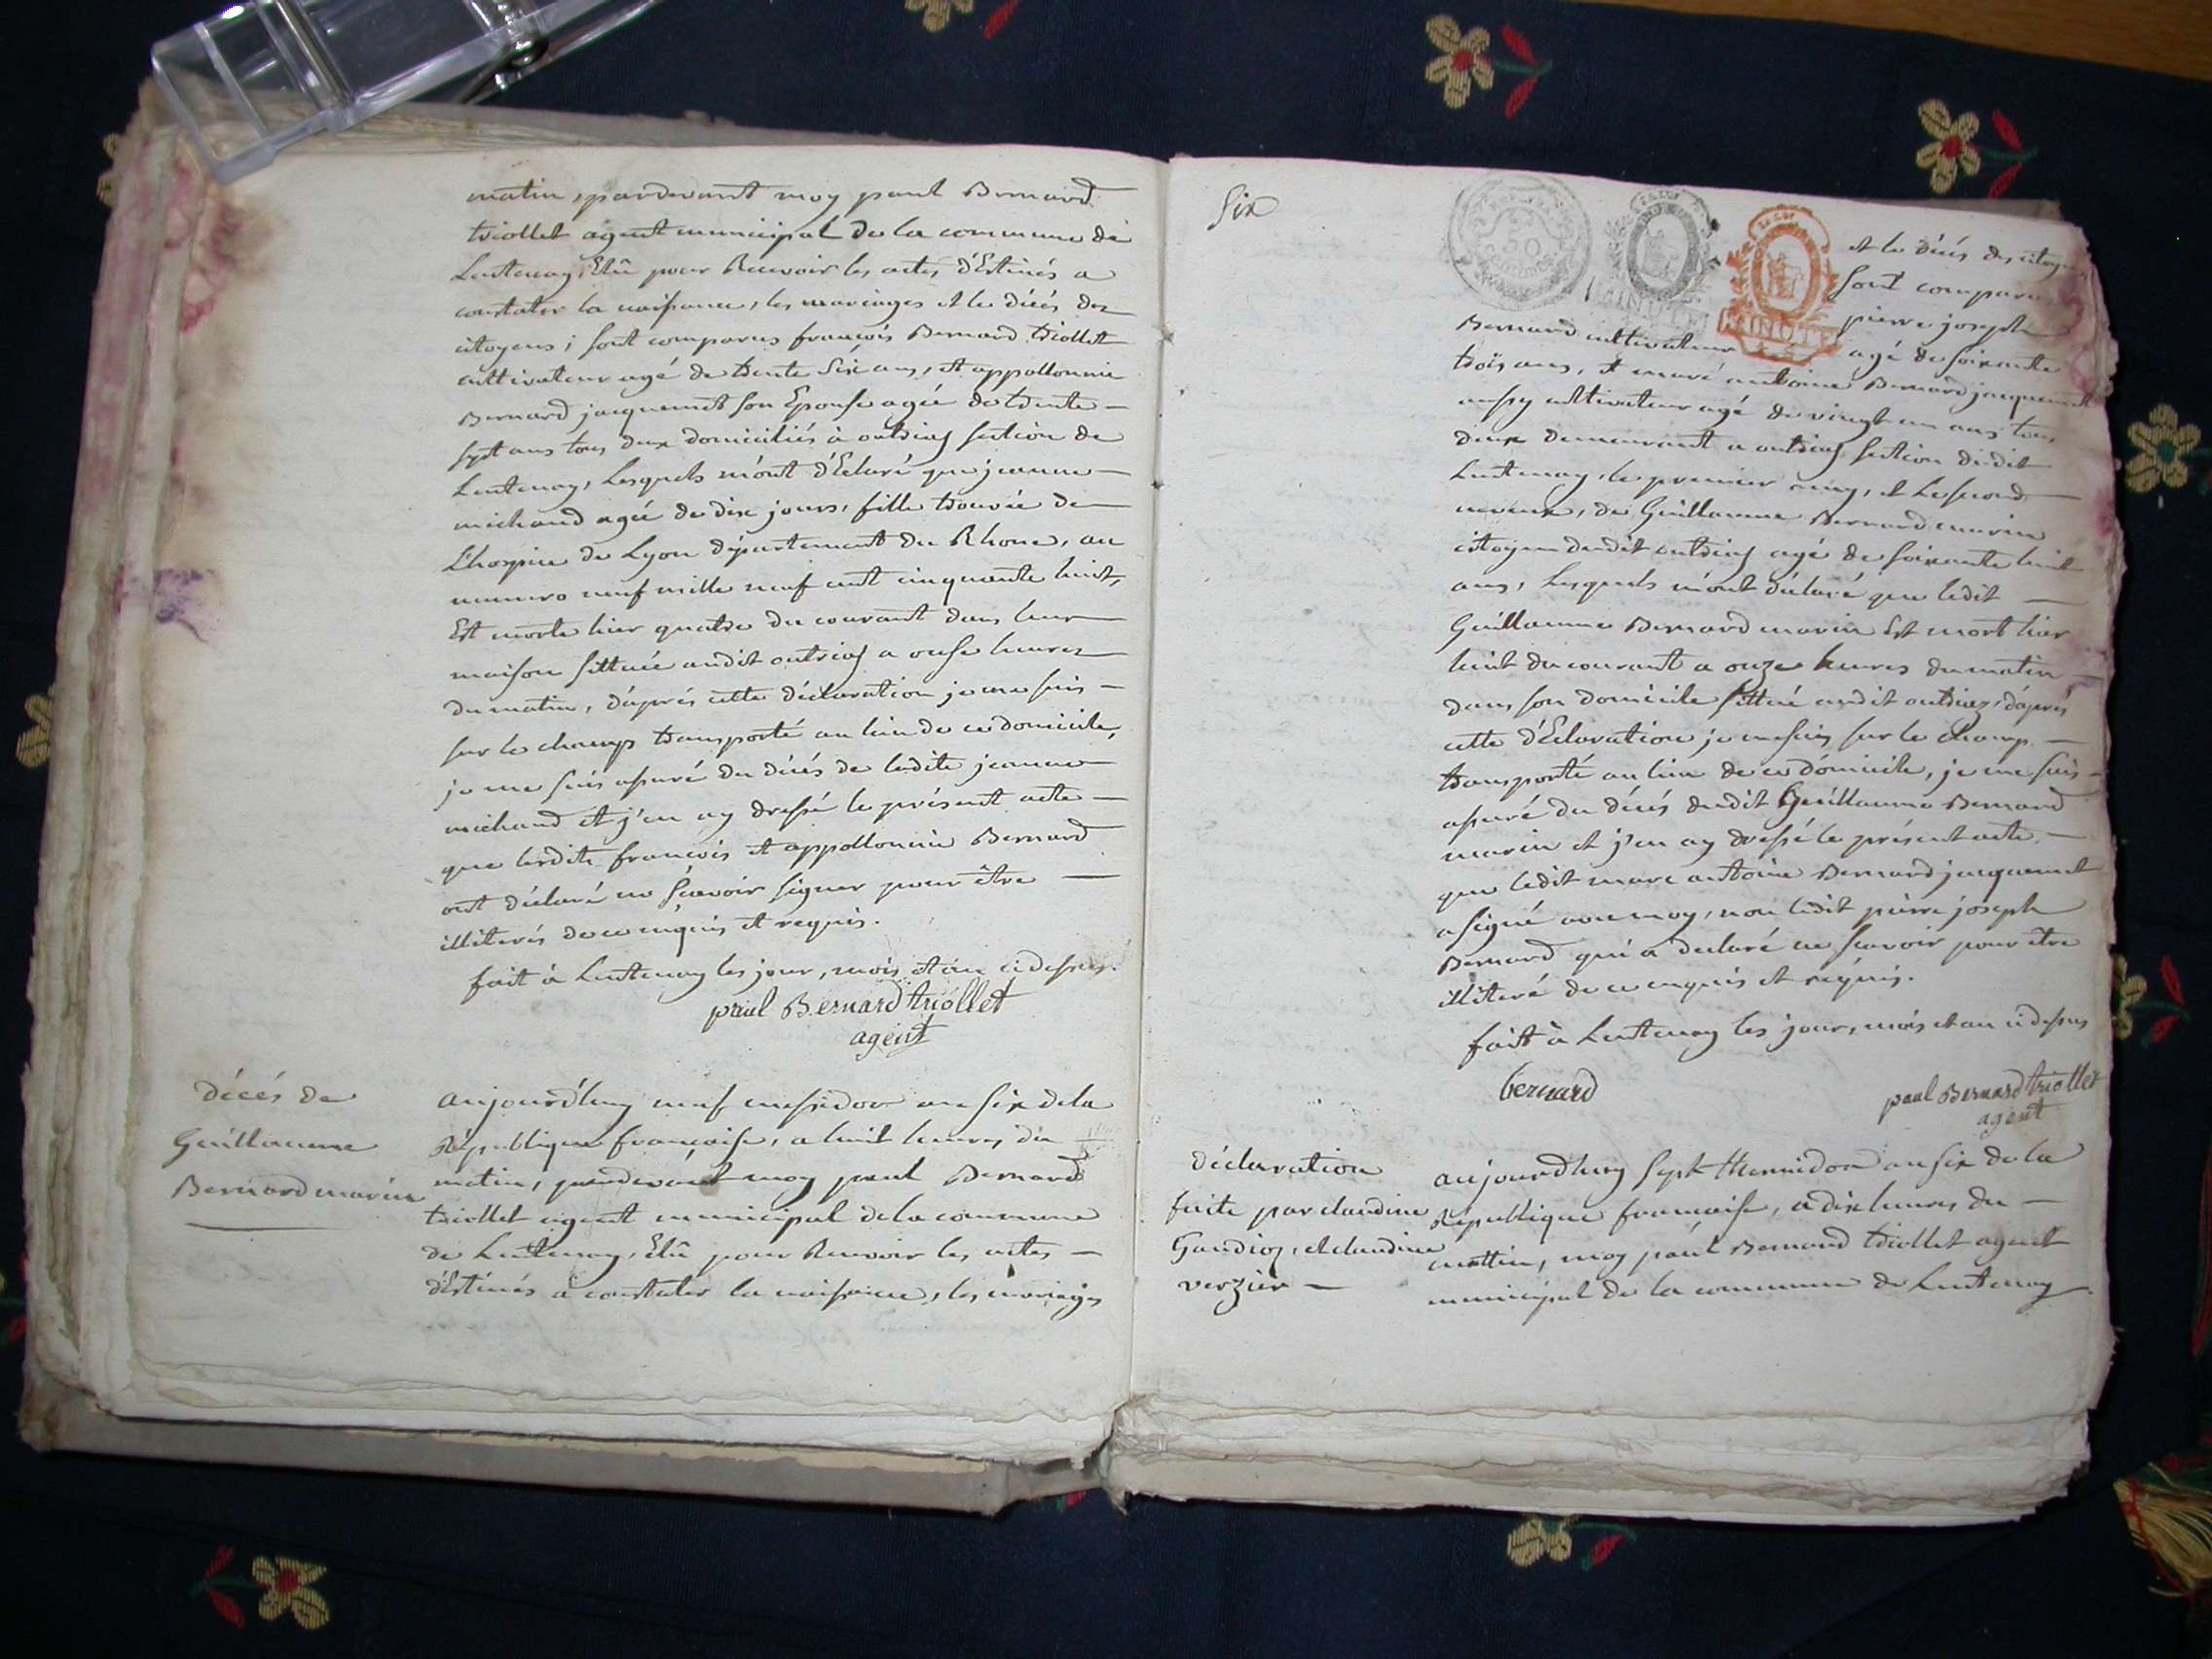 matin, pardevant moy paul Bernard
triollet agent municipal de la commune de
Lentenay, Elû pour Recevoir les actes d'Estinés a
constater la naissance, les mariages et le décés des
citoyens ; sont comparus françois Bernard triollet
cultivateur agé de trente Six ans, et appollonnie
Bernard jacquemet son Epouse agée de trente
sept ans tous deux domiciliés à outriaz section de
Lentenay, Lesquels m'ont d'Eclaré que jeanne
michaud agée de dix jours, fille trouvée de
L'hospice de Lyon département du Rhone, au
numero neuf mille neuf cent cinquante huit,
Est morte hier quatre du courant dans leur
maison sittuée audit outriaz a onse heures
du matin, d'aprés cette déclaration je me suis
sur le champ transporté au lieu de ce domicile,
je me suis assuré du décés de ladite jeanne
michaud et j'en ay dressé le présent acte
que lesdits francois et appollonnie Bernard
ont déclaré ne scavoir signer pour être
illiterés de ce enquis et requis.
fait à Lentenay les jour, mois et an ci dessus.
paul Bernard triollet
agent
décés de
Guillaume
Bernard marin
aujourd'huy neuf messidor an six de la
République françaisse, a huit heures du
matin, pardevant moy paul Bernard
triollet agent municipal de la commune
de Lentenay, Elû pour Recevoir les actes
d'Estinés a constater la naissance, les mariages
Six
50
MINUTE
MINUTE
et le décés des citoyens
sont comparus
pierre joseph
Bernard cultivateur agé de soixante
trois ans, et marc antoine Bernard jacquemet
aussy cultivateur agé de vingt un ans tous
deux demeurant a outriaz section dudit
Lentenay, le premier amy, et Le second
neveux, de Guillaume Bernard marin
citoyen dudit outriaz agé de soixante huit
ans, Lesquels m'ont déclaré que ledit
Guillaume Bernard marin Est mort hier
huit du courant a onze heures du matin
dans son domicile sittué audit outriaz, d'aprés
cette d'Eclaration je me suis sur le champ
transporté au lieu de ce domicile, je me suis
assuré du décés dudit Guillaume Bernard
marin et j'en ay dressé le présent acte,
que ledit marc antoine Bernard jacquemet
a signé avec moy, non ledit pierre joseph
Bernard qui a declaré ne scavoir pour être
illiteré de ce enquis et requis.
fait à Lentenay les jour, mois et an ci dessus
bernard
paul Bernard triollet
agent
déclaration
faite par claudine
Gaudioz, et claudine
verzier
aujourdhuy sept thermidor an six de la
République francaise, a dix heures du
mattin, moy paul Bernard triollet agent
municipal de la commune de Lentenay